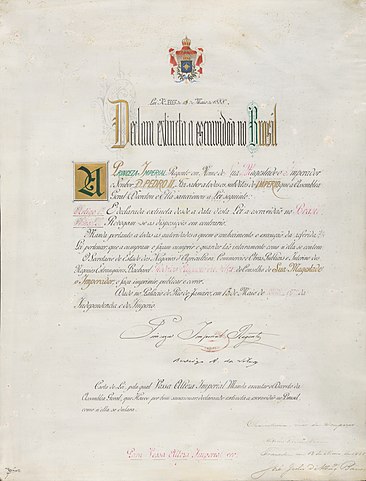 Lei N. 3353 de 13 de Maio de 1888.
Declara extincta a escravidão no Brasil
A PRINCEZA IMPERIAL Regente em Nome de Sua Magestade o Imperador
o Senhor D. PEDRO II, Faz saber a todos os subditos do IMPERIO que a Assembléa
Geral Decretou e Ella sanccionou a Lei seguinte:
Artigo 1.º É declarada extincta desde a data desta Lei a escravidão no Brazil.
Revogam-se as disposições em contrario.
Manda portanto a todas as autoridades a quem o conhecimento e execução da referida
Lei pertencer, que a cumpram e façam cumprir e guardar tão inteiramente como n'ella se contem.
O Secretario de Estado dos Negocios d'Agricultura, Commercio e Obras Publicas e Interino dos
Negocios Estrangeiros, Bacharel do Conselho de Sua Magestade
o Imperador, o faça imprimir, publicar e correr.
Dado no Palacio do Rio de Janeiro, em 13 de Maio de
da Independencia e do Imperio.
Princeza Imperial Regente
Rodrigo A. da Silva
Carta de Lei, pela qual Vossa Alteza Imperial Manda executar o Decreto da
Assembléa Geral, que Houve por bem sanccionar declarando extincta a escravidão no Brasil,
como n'ella se declara.
Para Vossa Alteza Imperial ver.